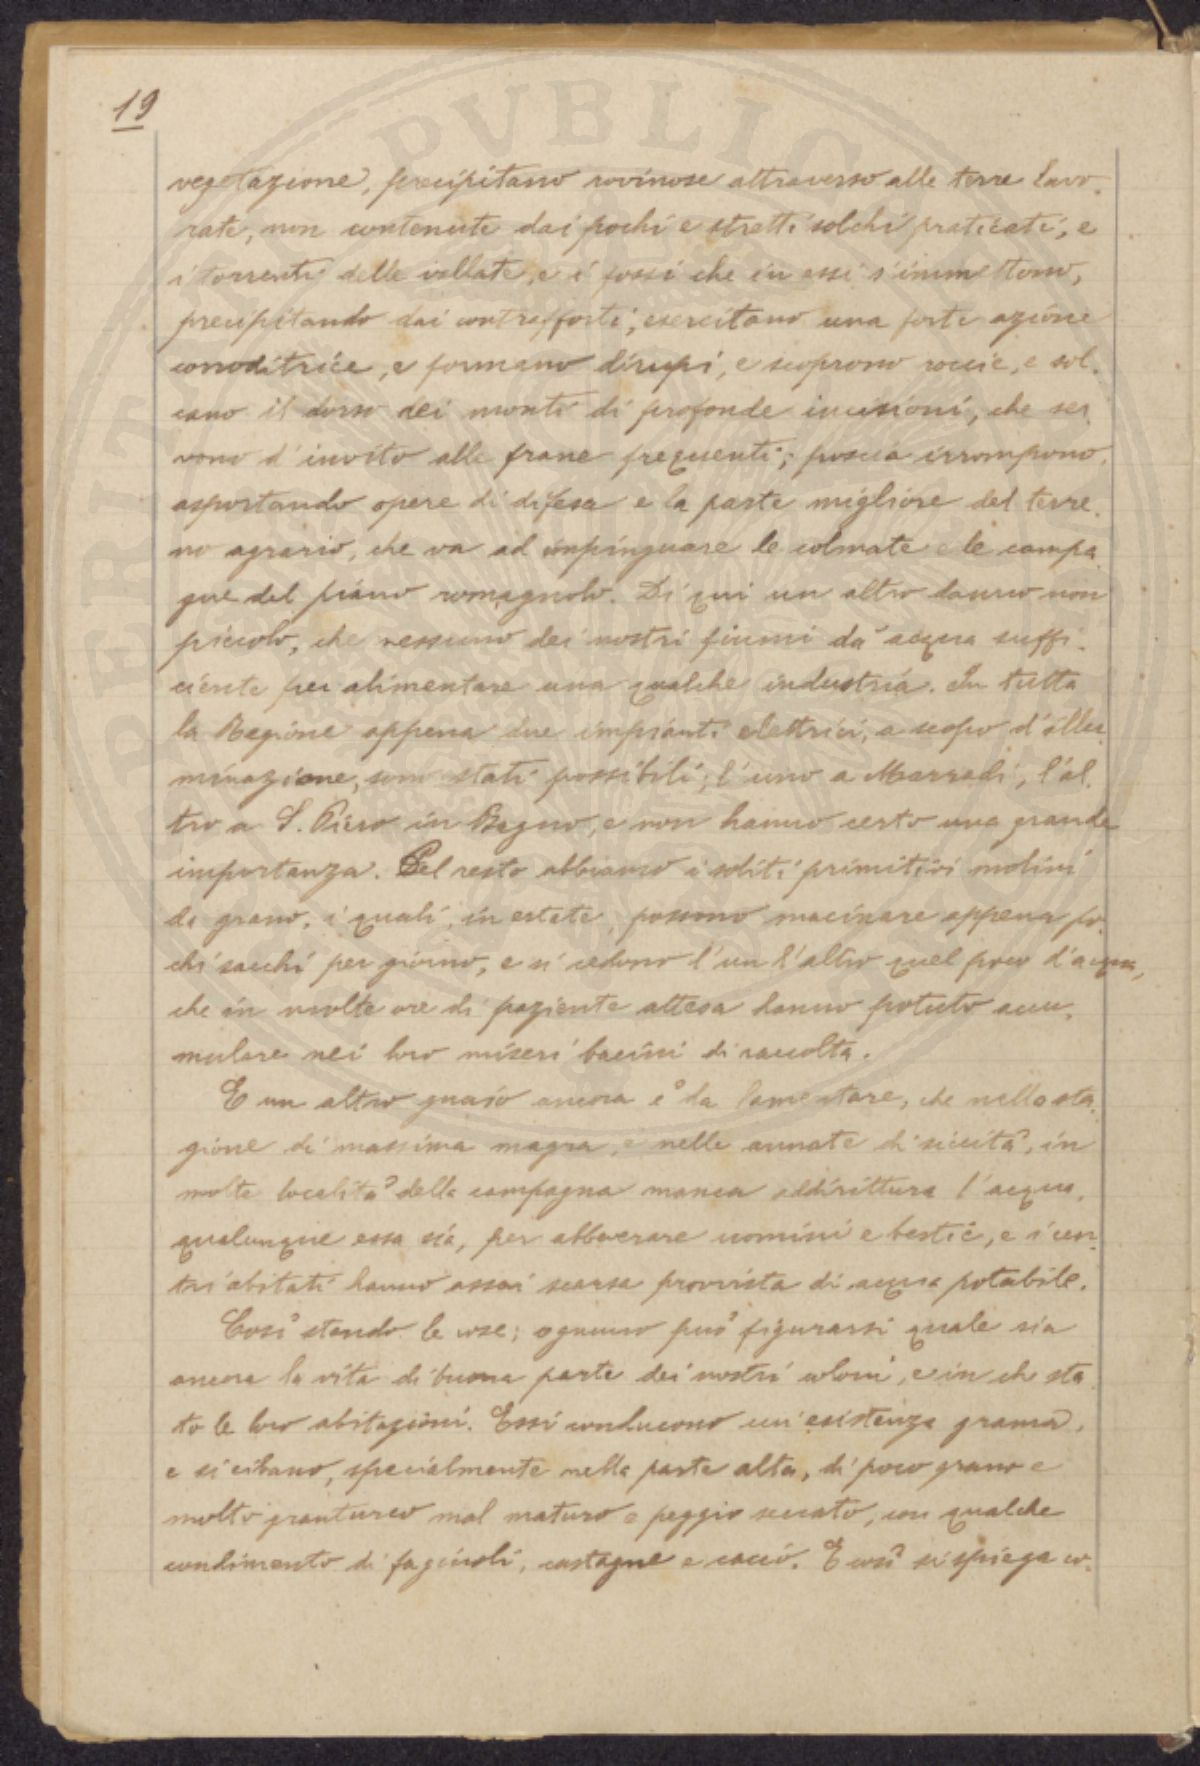 19
vegetazione, precipitano rovinose attraverso alle terre lavo-
rate, non contenute dai pochi e stretti solchi praticati, e
i torrenti delle vallate, e i fossi che in essi s'immettono,
precipitando dai contrafforti, esercitano una forte azione
corroditrice, e formano dirupi, e scoprono roccie, e sol-
cano il dorso dei monti di profonde incisioni, che ser
vono d'invito alle frane frequenti; poscia irrompono,
asportando opere di difesa e la parte migliore del terre-
no agrario, che va ad impinguare le colmate e le campa
gne del piano romagnolo. Di qui un altro danno non
piccolo, che nessuno dei nostri fiumi dà acqua suffi-
ciente per alimentare una qualche industria. In tutta
la Regione appena due impianti elettrici, a scopo d'illu
minazione, sono stati possibili; l'uno a Marradi, l'al-
tro a S. Piero in Bagno, e non hanno certo una grande
importanza. Del resto abbiamo i soliti primitivi molini
da grano, i quali, in estate, possono macinare appena po-
chi sacchi per giorno, e si cedono l'un l'altro quel poco d'acqua,
che in molte ore di paziente attesa hanno potuto accu-
mulare nei loro miseri bacini di raccolta.
E un altro guaio ancora è da lamentare, che nella sta-
gione di massima magra, e nelle annate di siccità, in
molte località della campagna manca addirittura l'acqua,
qualunque essa sia, per abbeverare uomini e bestie, e i cen-
tri abitati hanno assai scarsa provvista di acqua potabile.
Così stando le cose; ognuno può figurarsi quale sia
ancora la vita di buona parte dei nostri coloni, e in che sta
to le loro abitazioni. Essi conducono un'esistenza grama,
e si cibano, specialmente nella parte alta, di poco grano e
molto granturco mal maturo e peggio seccato, con qualche
condimento di fagiuoli, castagne e cacio. E così si spiega co-
PVBLIC